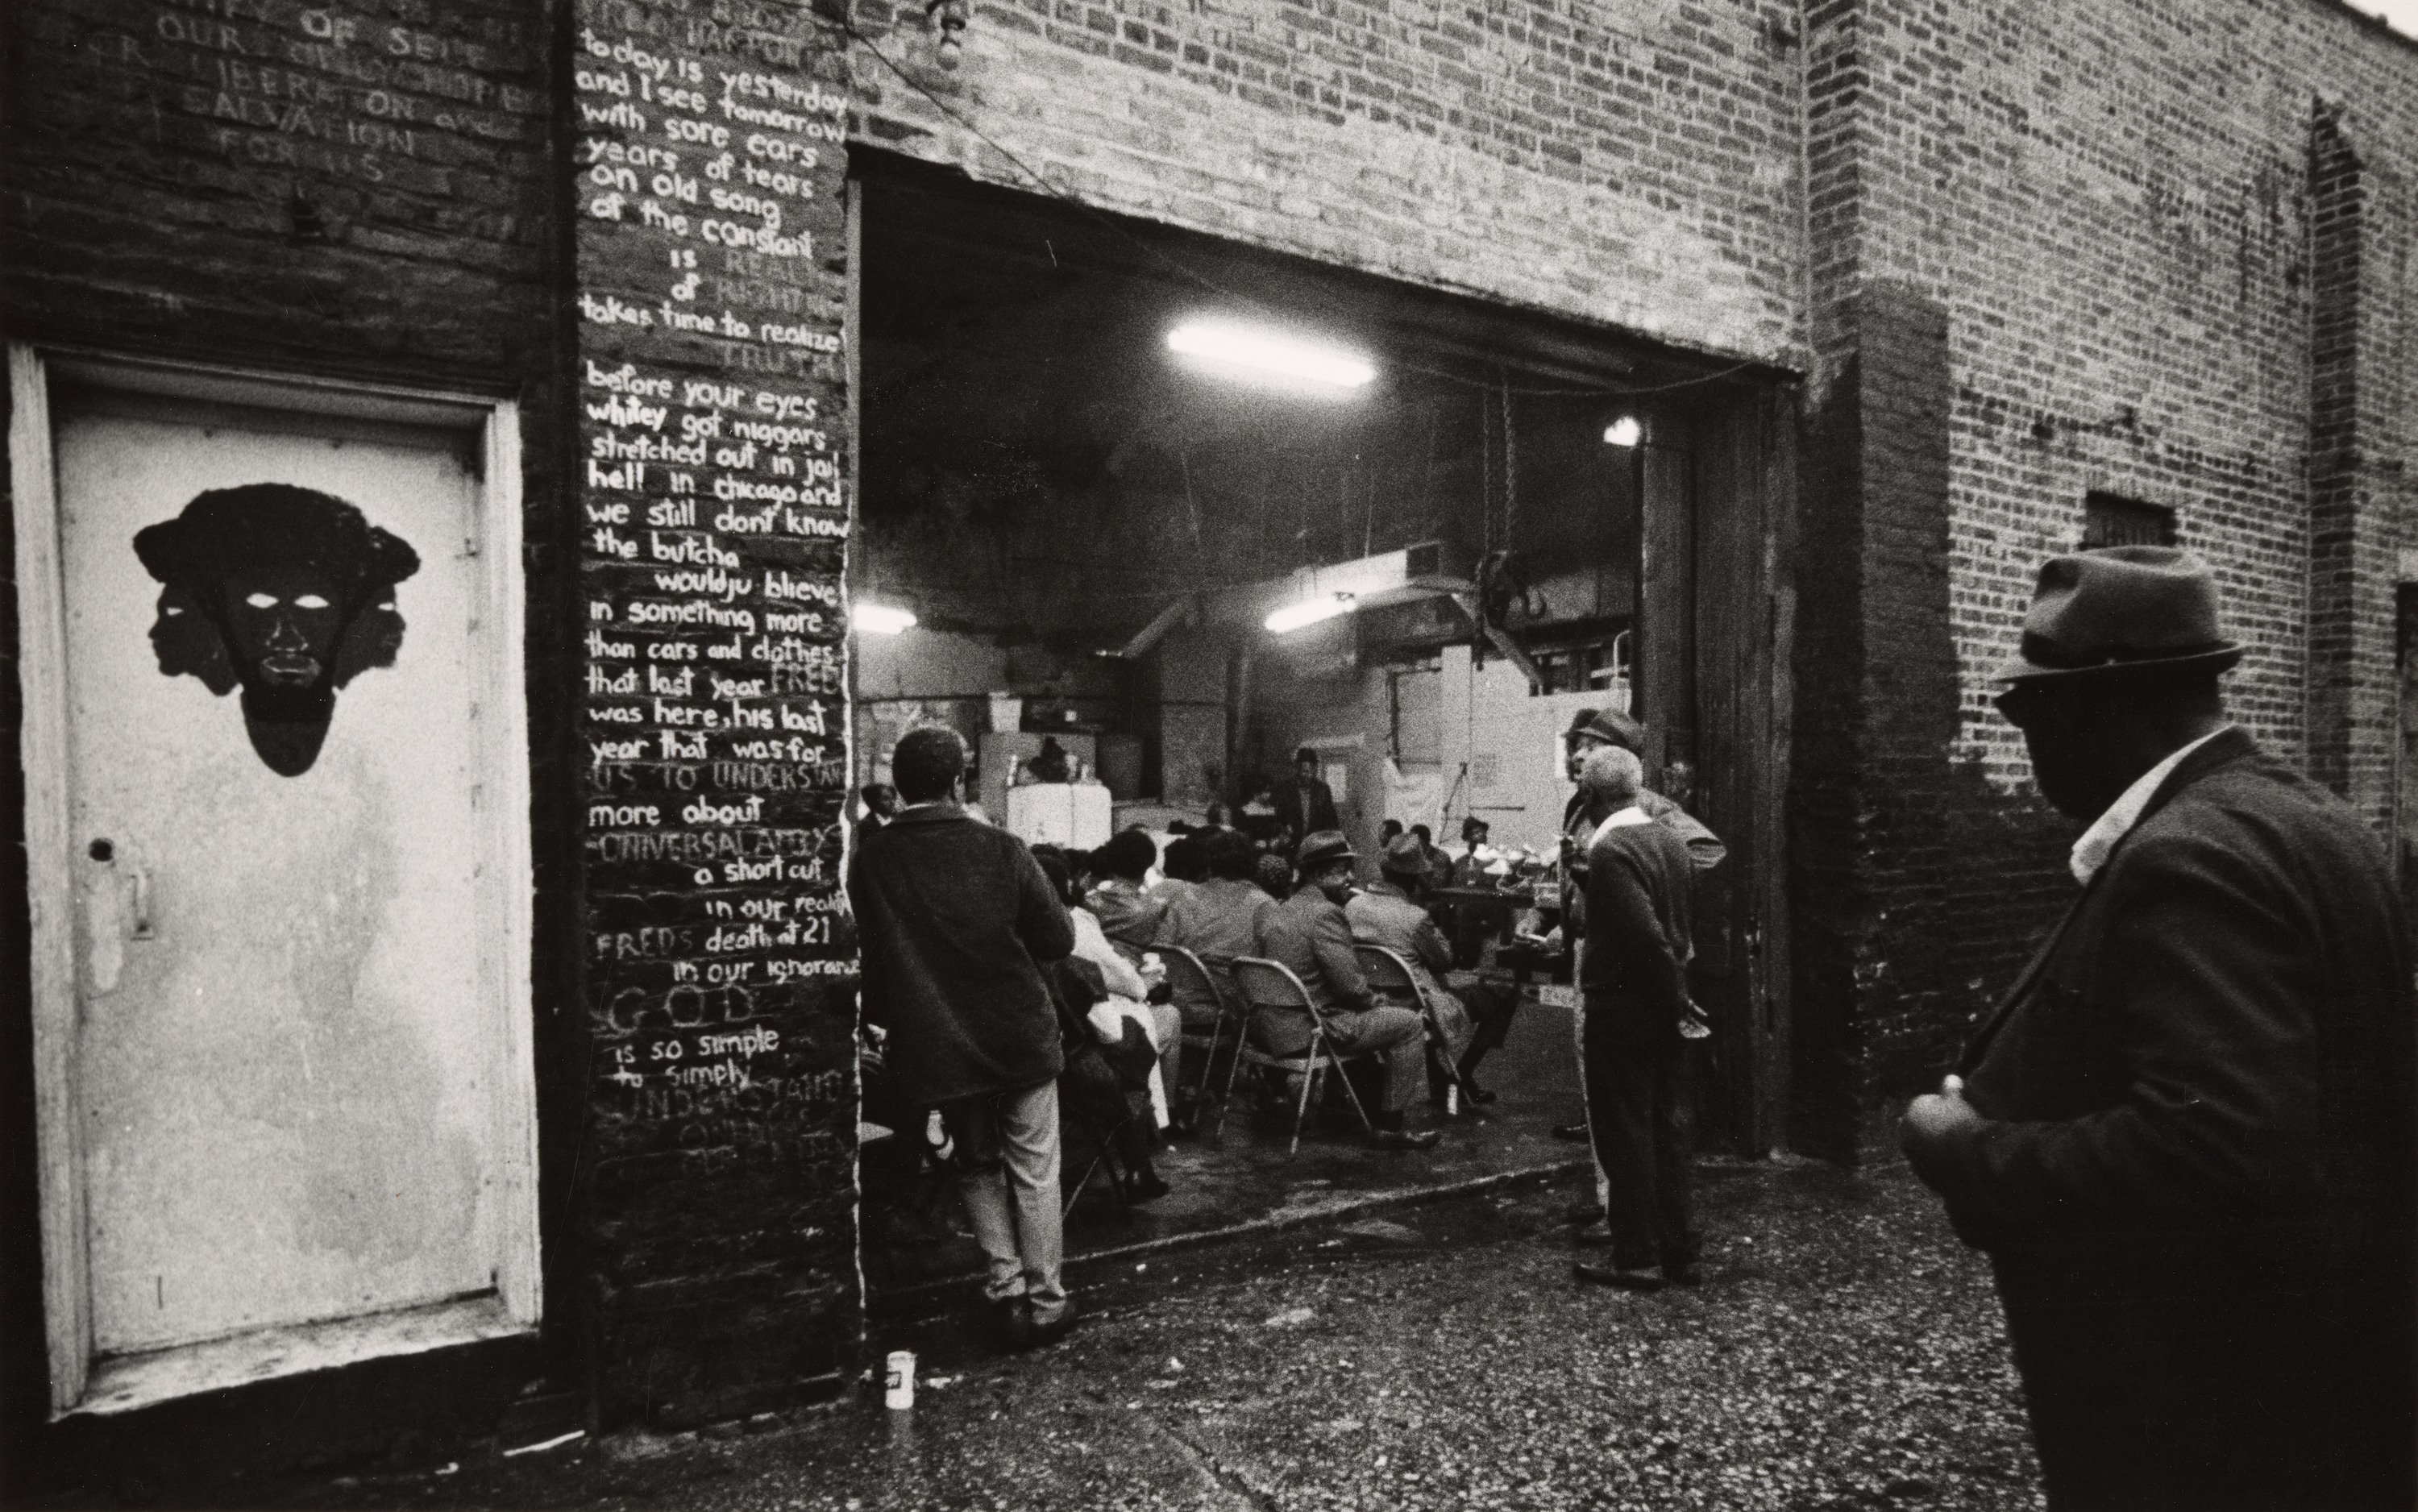 OF SELF
OUR
LIBERATION and
SALVATION
FOR US
today is yesterday
and I see tomorrow
with sore ears
years of tears
an old song
of the constant
is REAL
of
takes time to realize
TRUTH
before your eyes
whitey got niggars
stretched out in jail
hell in chicago and
we still dont know
the butcha
wouldju blieve
in something more
than cars and clothes
that last year FRED
was here, his last
year that was for
US TO UNDERSTAND
more about
a short cut
in our reality
FREDS death at 21
in our ignorance
GOD
is so simple
to simply
UNDERSTAND